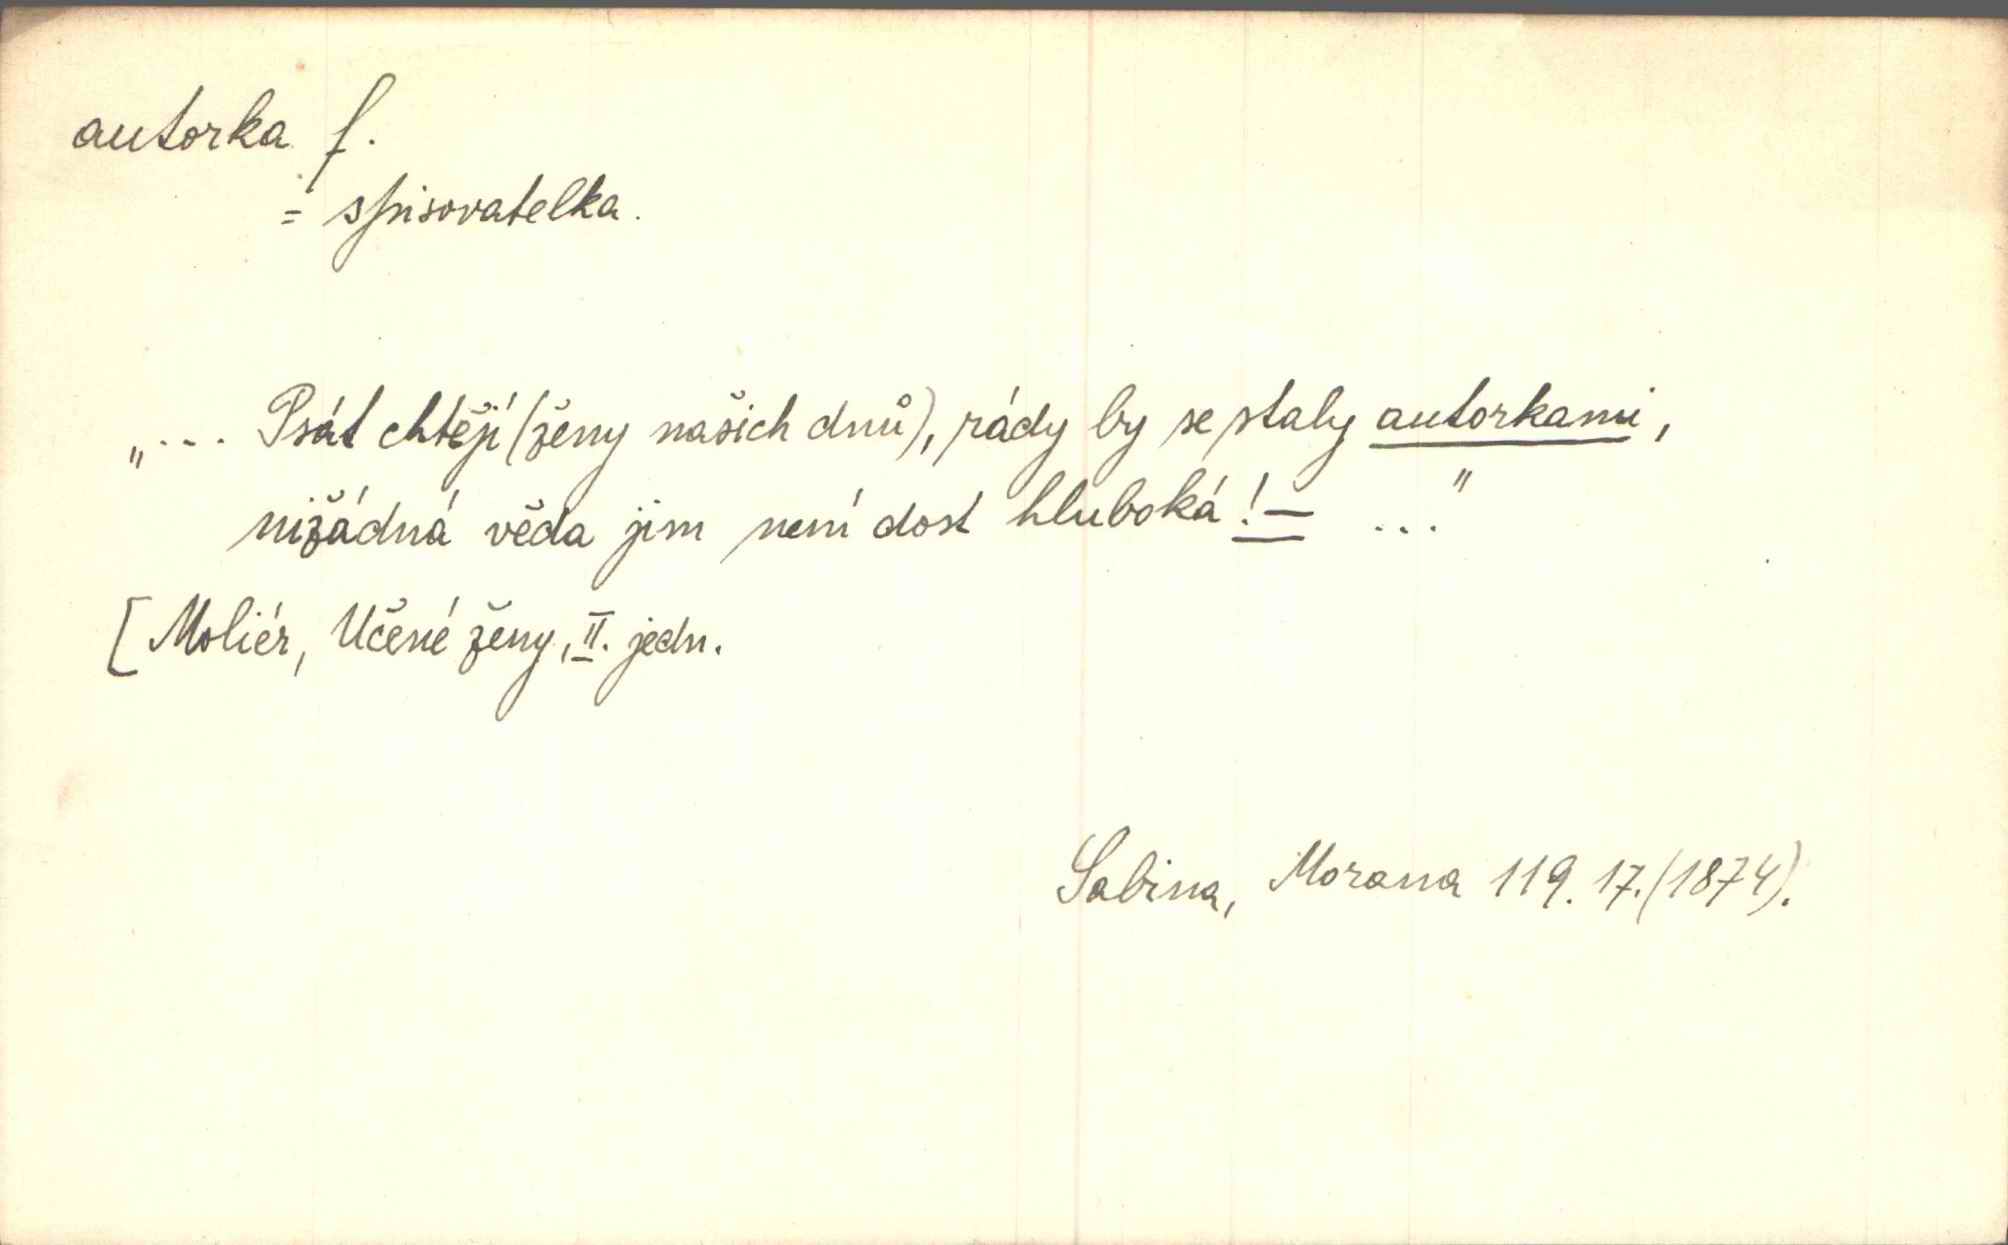 autorka f.
= spisovatelka.
„... Psát chtějí (ženy našich dnů), rády by se staly autorkami,
nižádná věda jim není dost hluboká! — ..."
[Moliér, Učené ženy, II. jedn.
Sabina, Morana 119. 17. (1874).